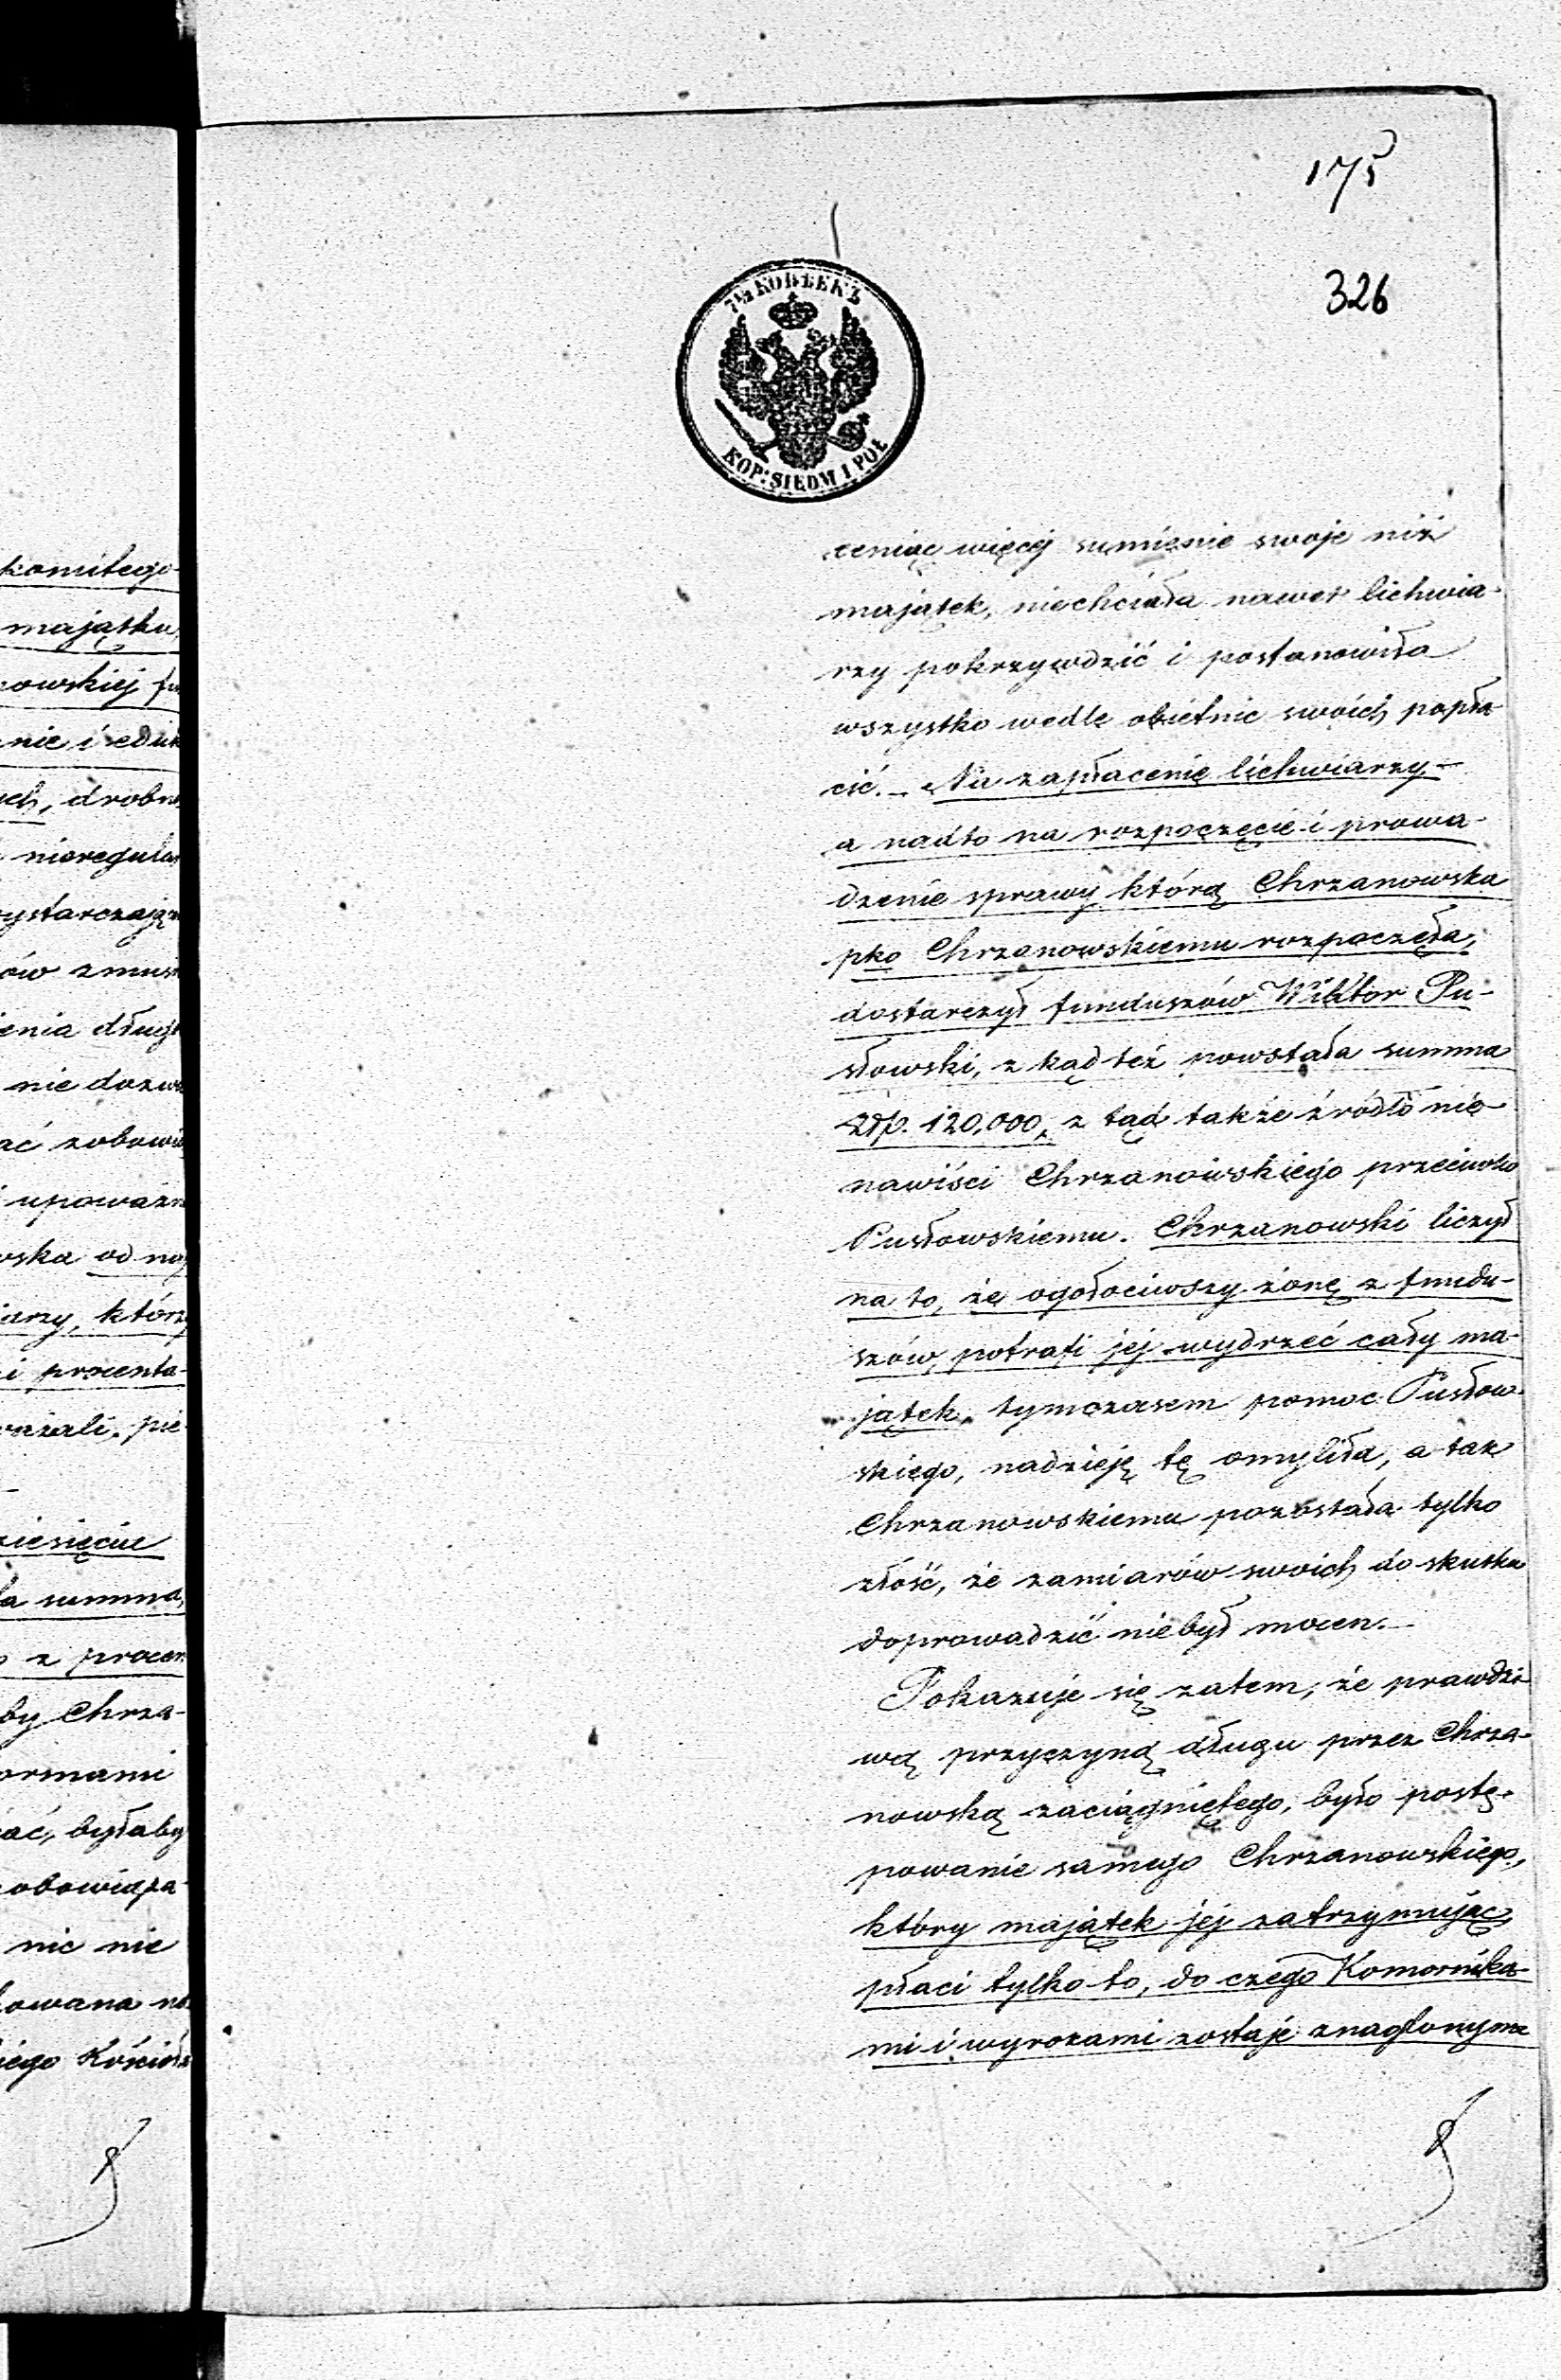 175
326
7½ КОПѢЕКЪ
KOP: SIEDM I PÓŁ
ceniąc więcej sumienie swoje niż
majątek, niechciała nawet lichwia-
rzy pokrzywdzić i postanowiła
wszystko wedle obietnic swoich popła-
cić. – Na zapłacenie lichwiarzy –
a nadto na rozpoczęcie i prowa-
dzenie sprawy którą Chrzanowska
pko Chrzanowskiemu rozpoczęła,
dostarczył funduszów Wiktor Pu-
słowski, z kąd też powstała summa
Złp. 120,000, z tąd także źródło nie-
nawiści Chrzanowskiego przeciwko
Pusłowskiemu. Chrzanowski liczył
na to, że ogołociwszy żonę z fundu-
szów, potrafi jej wydrzeć cały ma-
jątek, tymczasem pomoc Pusłow-
skiego, nadzieję tę omyliła, a tak
Chrzanowskiemu pozostała tylko
złość, że zamiarów swoich do skutku
doprowadzić niebył mocen. –
Pokazuje się zatem, że prawdzi-
wą przyczyną długu przez Chrza-
nowską zaciągniętego, było postę-
powanie samego Chrzanowskiego,
który majątek jej zatrzymując,
płaci tylko to, do czego Komornika-
mi i wyrokami zostaje znaglonym
komitego
majątku,
nowskiej
nie i
ych, drobn
nieregular
ystarczają
ów zmus
enia długu
nie dozw
ać zobowią
upoważn
wska od na
iarzy, którzy
i procenta-
ważali, pie-
ziesięciu
ła summa,
z procen
by Chrza-
ormami
ać, byłaby
obowiąza-
nic nie
kowana na
iego Kościoła